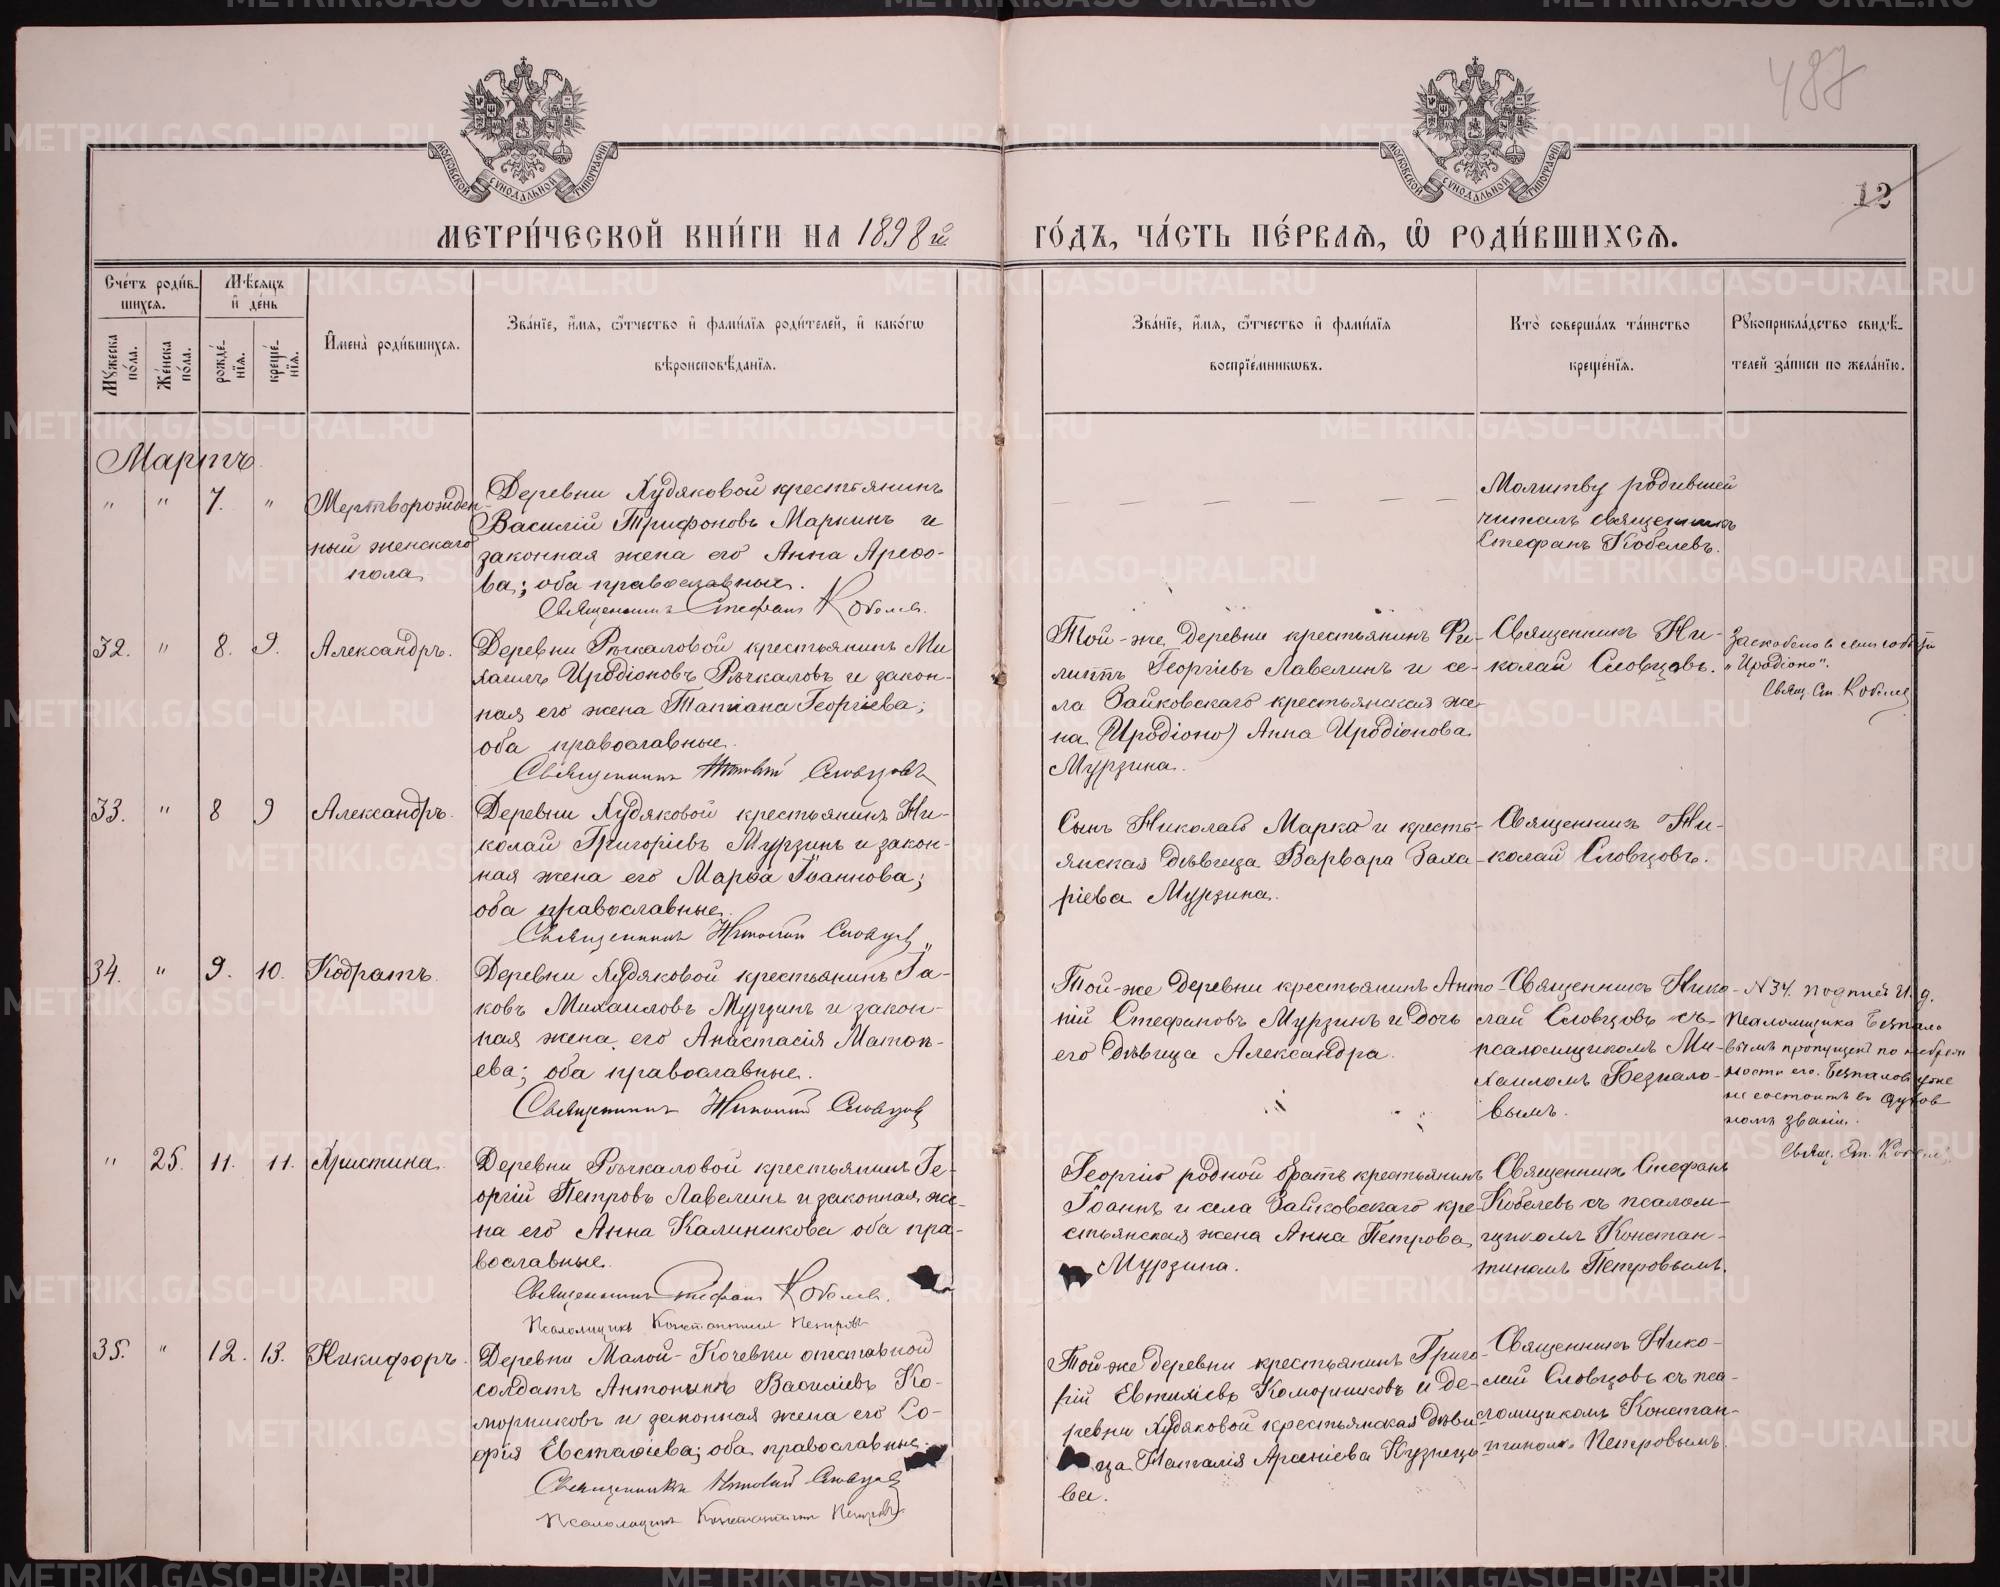 487
МОСКОВСКОЙ СѴНОДАЛЬНОЙ ТИПОГРАФІИ
МОСКОВСКОЙ СѴНОДАЛЬНОЙ ТИПОГРАФІИ
12
МЕТРИ́ЧЕСКОЙ КНИ́ГИ НА 1898 й
ГО́ДЪ, ЧА́СТЬ ПЕ́РВАѦ, Ѽ РОДИ́ВШИХСѦ.
Сче́тъ роди́в-
шихсѧ.
Мѣ́сѧцъ
и҆ де́нь
Мꙋ́жеска
по́ла.
Же́нска
по́ла.
рожде́-
нїѧ.
креще́-
нїѧ.
И҆мена̀ роди́вшихсѧ.
Зва́нїе, и҆́мѧ, ѻ҆́тчество и҆ фами́лїѧ роди́телей, и҆ како́гѡ
вѣроисповѣ́данїѧ.
Зва́нїе, и҆́мѧ, ѻ҆́тчество и҆ фами́лїѧ
воспрїе́мникѡвъ.
Кто̀ соверша́лъ та́инство
креще́нїѧ.
Рꙋкоприкла́дство свидѣ́-
телей за́писи по жела́нїю.
Мартъ
" " 7. " Мертворожден-
ный женскаго
пола
Деревни Худяковой крестьянинъ
Василій Трифоновъ Маркинъ и
законная жена его Анна Арефо-
ва; оба православные.
Священникъ Стефанъ Кобелев.
Молитву родившей
читалъ священникъ
Стефанъ Кобелевъ.
32. " 8. 9. Александръ.
Деревни Рычкаловой крестьянинъ Ми
хаилъ Иродіоновъ Рычкаловъ и закон-
ная его жена Татіана Георгіева;
оба православные.
Священникъ Николай Словцовъ
Той-же деревни крестьянинъ Фи-
липпъ Георгіевъ Лавелинъ и се-
ла Зайковскаго крестьянская же-
на (Иродіоно) Анна Иродіонова
Мурзина.
Священникъ Ни-
колай Словцовъ.
"Иродіоно".
Свящ. Ст. Кобелев
33. " 8 9 Александръ.
Деревни Худяковой крестьянинъ Ни-
колай Григоріевъ Мурзинъ и закон-
ная жена его Марѳа Іоаннова;
оба православные.
Священникъ Николай Словцов
Сынъ Николая Марка и кресть-
янская дѣвица Варвара Заха-
ріева Мурзина.
Священникъ Ни-
колай Словцовъ.
34. " 9. 10. Кодратъ.
Деревни Худяковой крестьянинъ Іа-
ковъ Михаиловъ Мурзинъ и закон-
ная жена его Анастасія Матѳ-
ева; оба православные.
Священникъ Николай Словцов
Той-же деревни крестьянинъ Анто-
ній Стефановъ Мурзинъ и дочь
его дѣвица Александра.
Священникъ Нико-
лай Словцовъ съ
псаломщикомъ Ми-
хаиломъ Безпало-
вымъ.
N 34. подпись И. д.
псаломщика Безпало
вымъ пропущена по небреж
ности его. Безпалов уже
не состоитъ в духов
номъ званіи.
Свящ. Ст. Кобелев
" 25. 11. 11. Христина.
Деревни Рычкаловой крестьянинъ Ге-
оргій Петровъ Лавелинъ и законная же-
на его Анна Калиникова оба пра-
вославные.
Священникъ Стефанъ Кобелев.
Псаломщикъ Константинъ Петровъ
Георгія родной братъ крестьянинъ
Іоаннъ и села Зайковскаго кре-
стьянская жена Анна Петрова
Мурзина.
Священникъ Стефанъ
Кобелевъ съ псалом-
щикомъ Констан-
тиномъ Петровымъ.
35. " 12. 13. Никифоръ.
Деревни Малой-Кочевки отставной
солдатъ Антонинъ Василіевъ Ко-
морниковъ и законная жена его Со-
фія Евстаѳіева; оба православные.
Священникъ Николай Словцов
Псаломщикъ Константин Петровъ
Той-же деревни крестьянинъ Григо-
рій Евтихіевъ Коморниковъ и де-
ревни Худяковой крестьянская дѣви-
ца Наталія Арсеніева Кузнецо-
ва.
Священникъ Нико-
лай Словцовъ съ пса-
ломщикомъ Констан-
тиномъ Петровымъ.